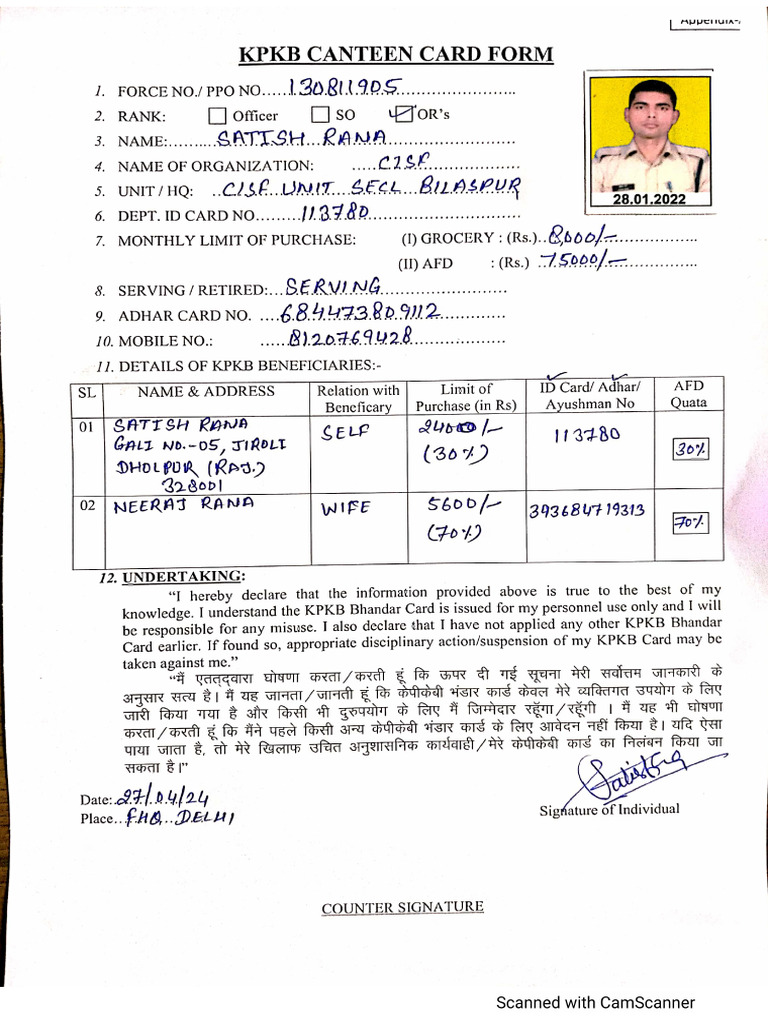 Appendix-
KPKB CANTEEN CARD FORM
1. FORCE NO./ PPO NO.....130811905..............................
2. RANK: Officer SO OR's
3. NAME:.........SATISH RANA..............................
4. NAME OF ORGANIZATION: .....CISF....................
5. UNIT / HQ: ..CISF UNIT SECL BILASPUR
6. DEPT. ID CARD NO.........113780..............................
28.01.2022
7. MONTHLY LIMIT OF PURCHASE: (I) GROCERY : (Rs.)..8,000/-..................
(II) AFD : (Rs.) .75000/-..................
8. SERVING / RETIRED:...SERVING..............................
9. ADHAR CARD NO. ....684473809112..................
10. MOBILE NO.: ......8120769428......................
11. DETAILS OF KPKB BENEFICIARIES:-
SL NAME & ADDRESS Relation with Beneficary Limit of Purchase (in Rs) ID Card/ Adhar/ Ayushman No AFD Quata
01 SATISH RANA SELF 24000/- 113780 30%
GALI NO.-05, JIROLI (30%)
DHOLPUR (RAJ.)
328001
02 NEERAJ RANA WIFE 5600/- 393684719313 70%
(70%)
12. UNDERTAKING:
"I hereby declare that the information provided above is true to the best of my
knowledge. I understand the KPKB Bhandar Card is issued for my personnel use only and I will
be responsible for any misuse. I also declare that I have not applied any other KPKB Bhandar
Card earlier. If found so, appropriate disciplinary action/suspension of my KPKB Card may be
taken against me."
"मैं एतत्द्वारा घोषणा करता/करती हूं कि ऊपर दी गई सूचना मेरी सर्वोत्तम जानकारी के
अनुसार सत्य है। मैं यह जानता/जानती हूं कि केपीकेबी भंडार कार्ड केवल मेरे व्यक्तिगत उपयोग के लिए
जारी किया गया है और किसी भी दुरुपयोग के लिए मैं जिम्मेदार रहूँगा/रहूँगी । मैं यह भी घोषणा
करता/करती हूं कि मैंने पहले किसी अन्य केपीकेबी भंडार कार्ड के लिए आवेदन नहीं किया है। यदि ऐसा
पाया जाता है, तो मेरे खिलाफ उचित अनुशासनिक कार्यवाही/मेरे केपीकेबी कार्ड का निलंबन किया जा
सकता है।"
Date:.27/04/24
Place...FHQ...DELHI
Signature of Individual
COUNTER SIGNATURE
Scanned with CamScanner